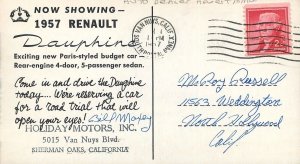 NOW SHOWING—
1957 RENAULT
Dauphine
Exciting new Paris-styled budget car—
Rear-engine 4-door, 5-passenger sedan.
Come in and drive the Dauphine
today.... We're reserving a car
for a Road Trial that will
open your eyes! Bill Mozey
HOLIDAY MOTORS, INC.
5015 Van Nuys Blvd.
SHERMAN OAKS, CALIFORNIA
VAN NUYS, CALIF.
1957
McRoy Russell
Weddington
North Hollywood
Calif